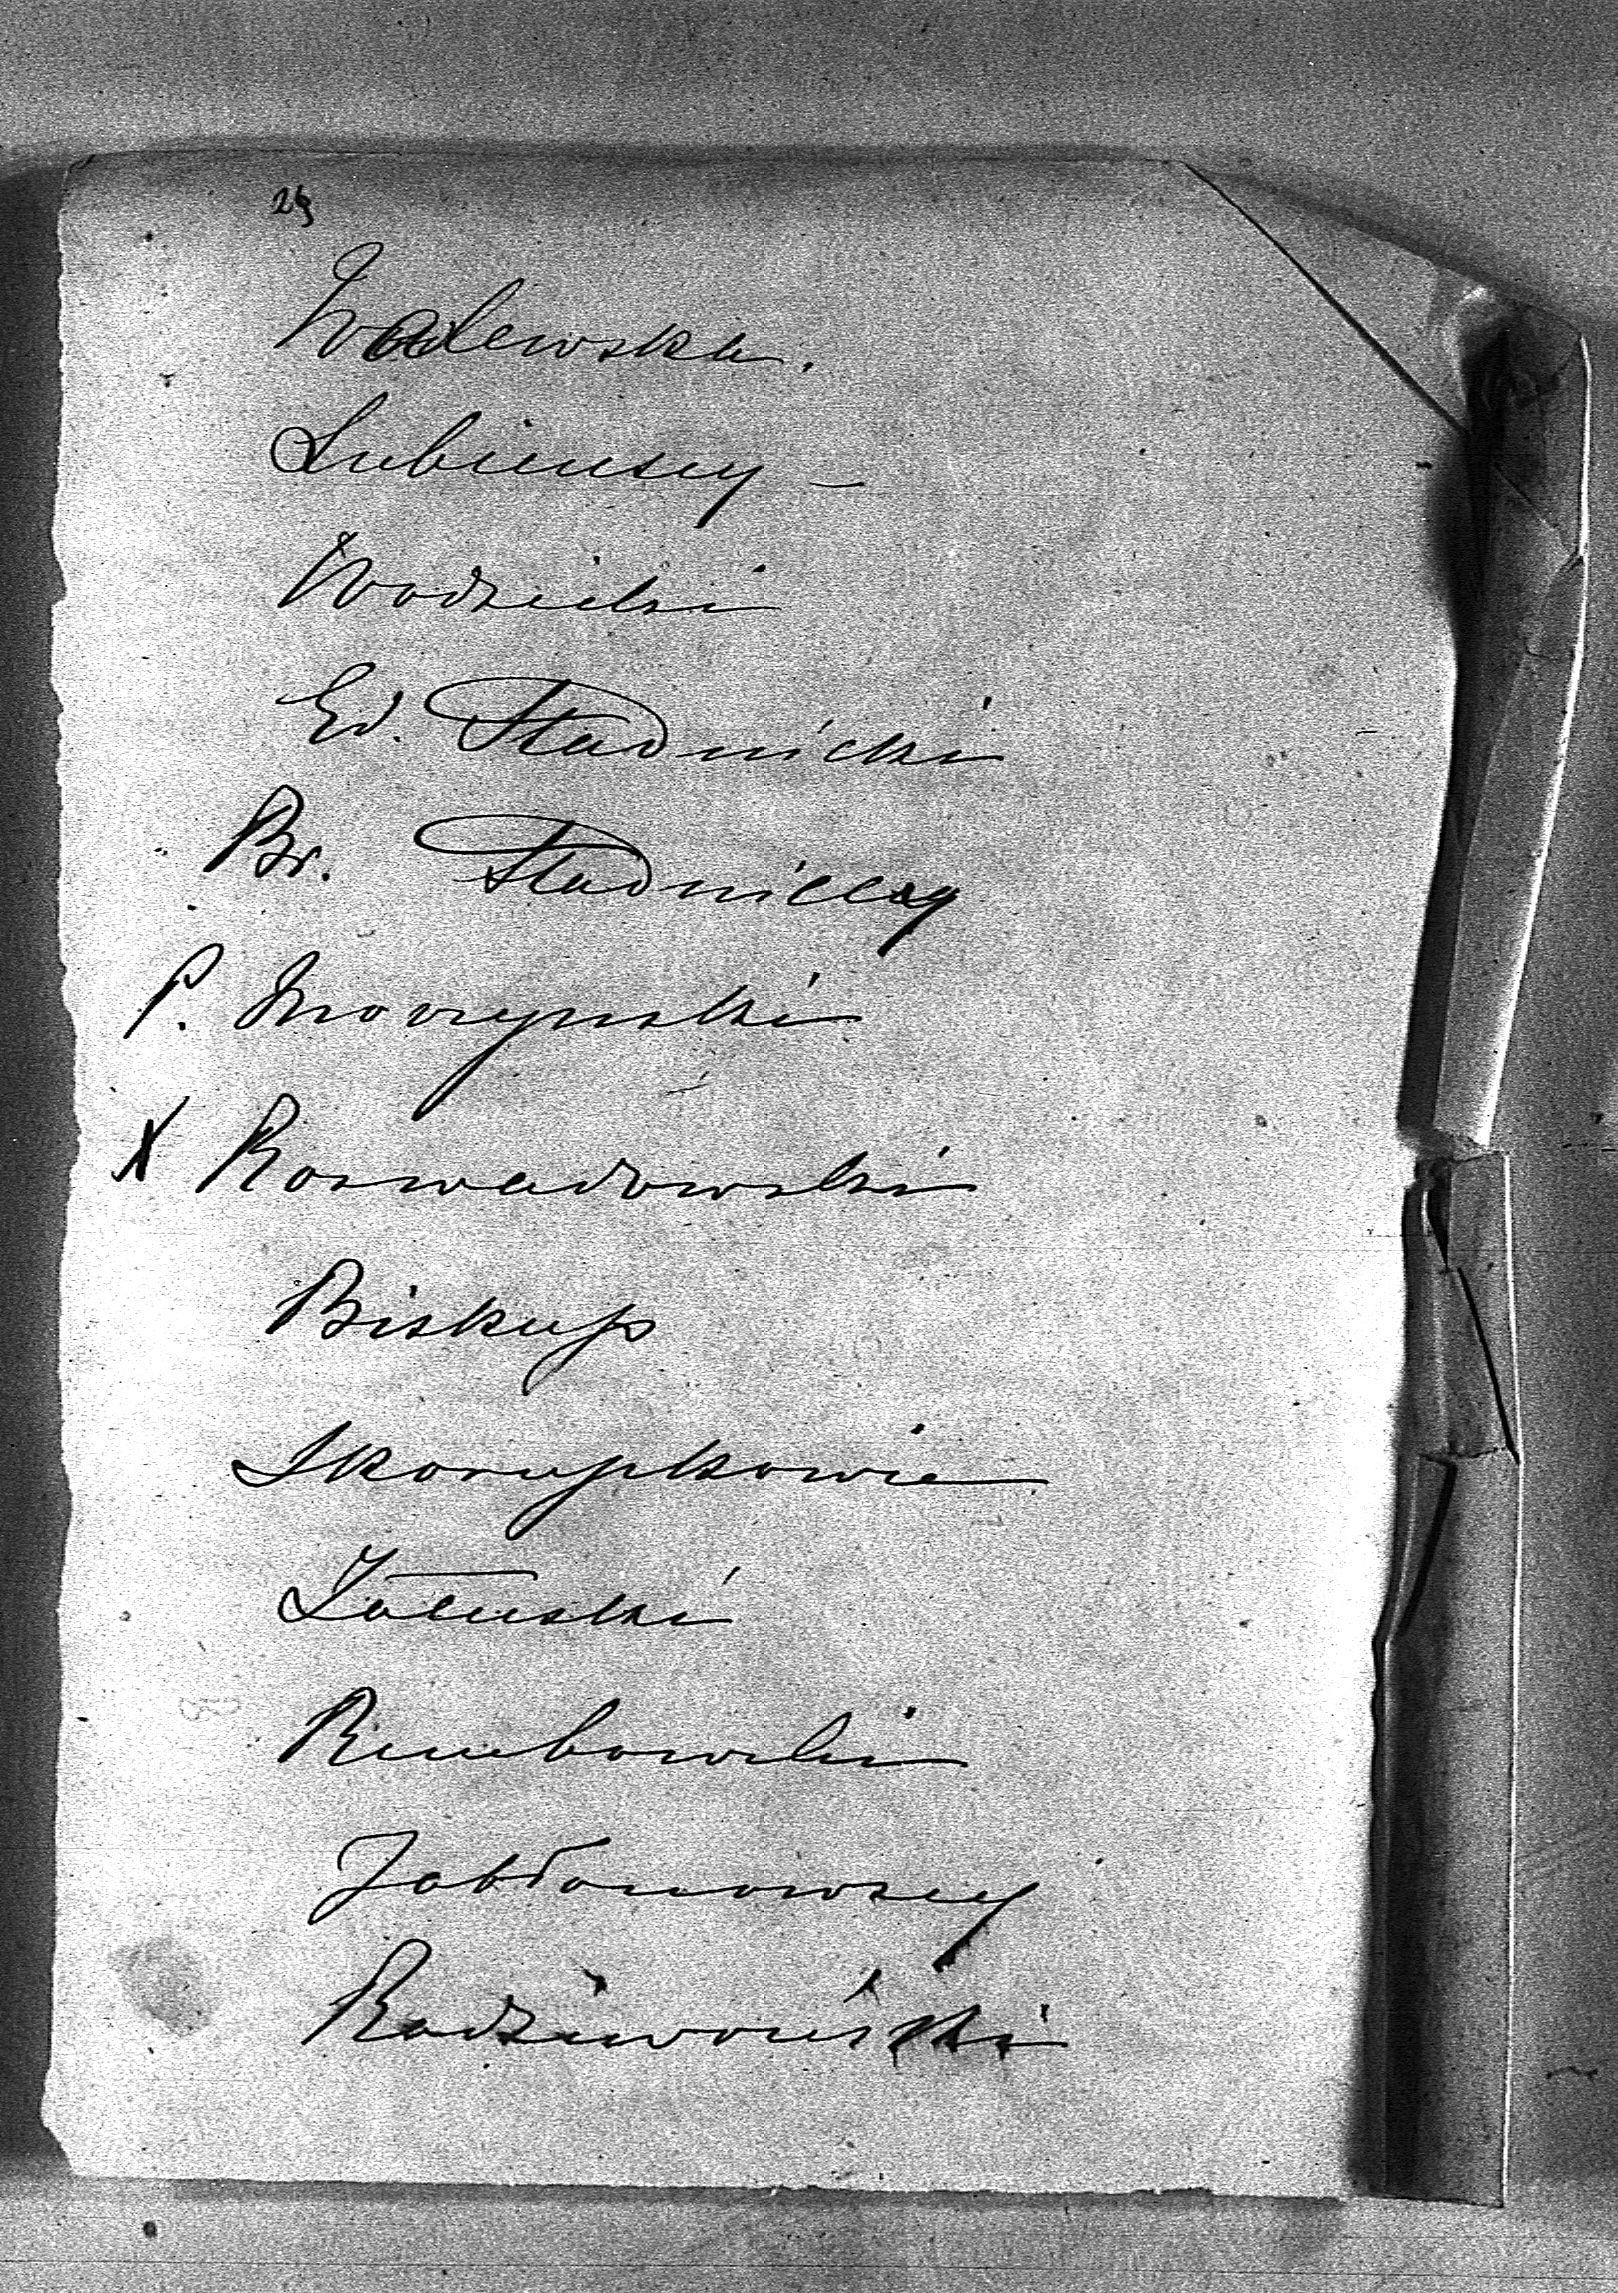 25
Walewska.
Lubienscy -
Wodzicki
Ed. Stadnicki
Br. Stadniccy
P. Morzynski
X Rozwadowski
Biskup
Skorupkowie
Załuski
Rembowski
Jabłonowscy
Radziwoński